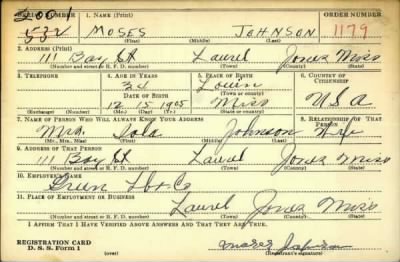 SERIAL NUMBER 1. NAME (Print) ORDER NUMBER
532 MOSES JOHNSON 1179
(First) (Middle) (Last)
2. ADDRESS (Print)
111 Bay St Laurel Jones Miss
(Number and street or R. F. D. number) (Town) (County) (State)
3. TELEPHONE 4. AGE IN YEARS 5. PLACE OF BIRTH 6. COUNTRY OF CITIZENSHIP
Louin
DATE OF BIRTH (Town or county)
12 15 1905 Miss U S A
(Exchange) (Number) (Mo.) (Day) (Yr.) (State or country)
7. NAME OF PERSON WHO WILL ALWAYS KNOW YOUR ADDRESS 8. RELATIONSHIP OF THAT PERSON
Mrs. Iola Johnson Wife
(Mr., Mrs., Miss) (First) (Middle) (Last)
9. ADDRESS OF THAT PERSON
111 Bay St Laurel Jones Miss
(Number and street or R. F. D. number) (Town) (County) (State)
10. EMPLOYER'S NAME
Green Lbr Co
11. PLACE OF EMPLOYMENT OR BUSINESS
Laurel Jones Miss
(Number and street or R. F. D. number) (Town) (County) (State)
I AFFIRM THAT I HAVE VERIFIED ABOVE ANSWERS AND THAT THEY ARE TRUE.
REGISTRATION CARD
D. S. S. Form 1 (over) (Registrant's signature)